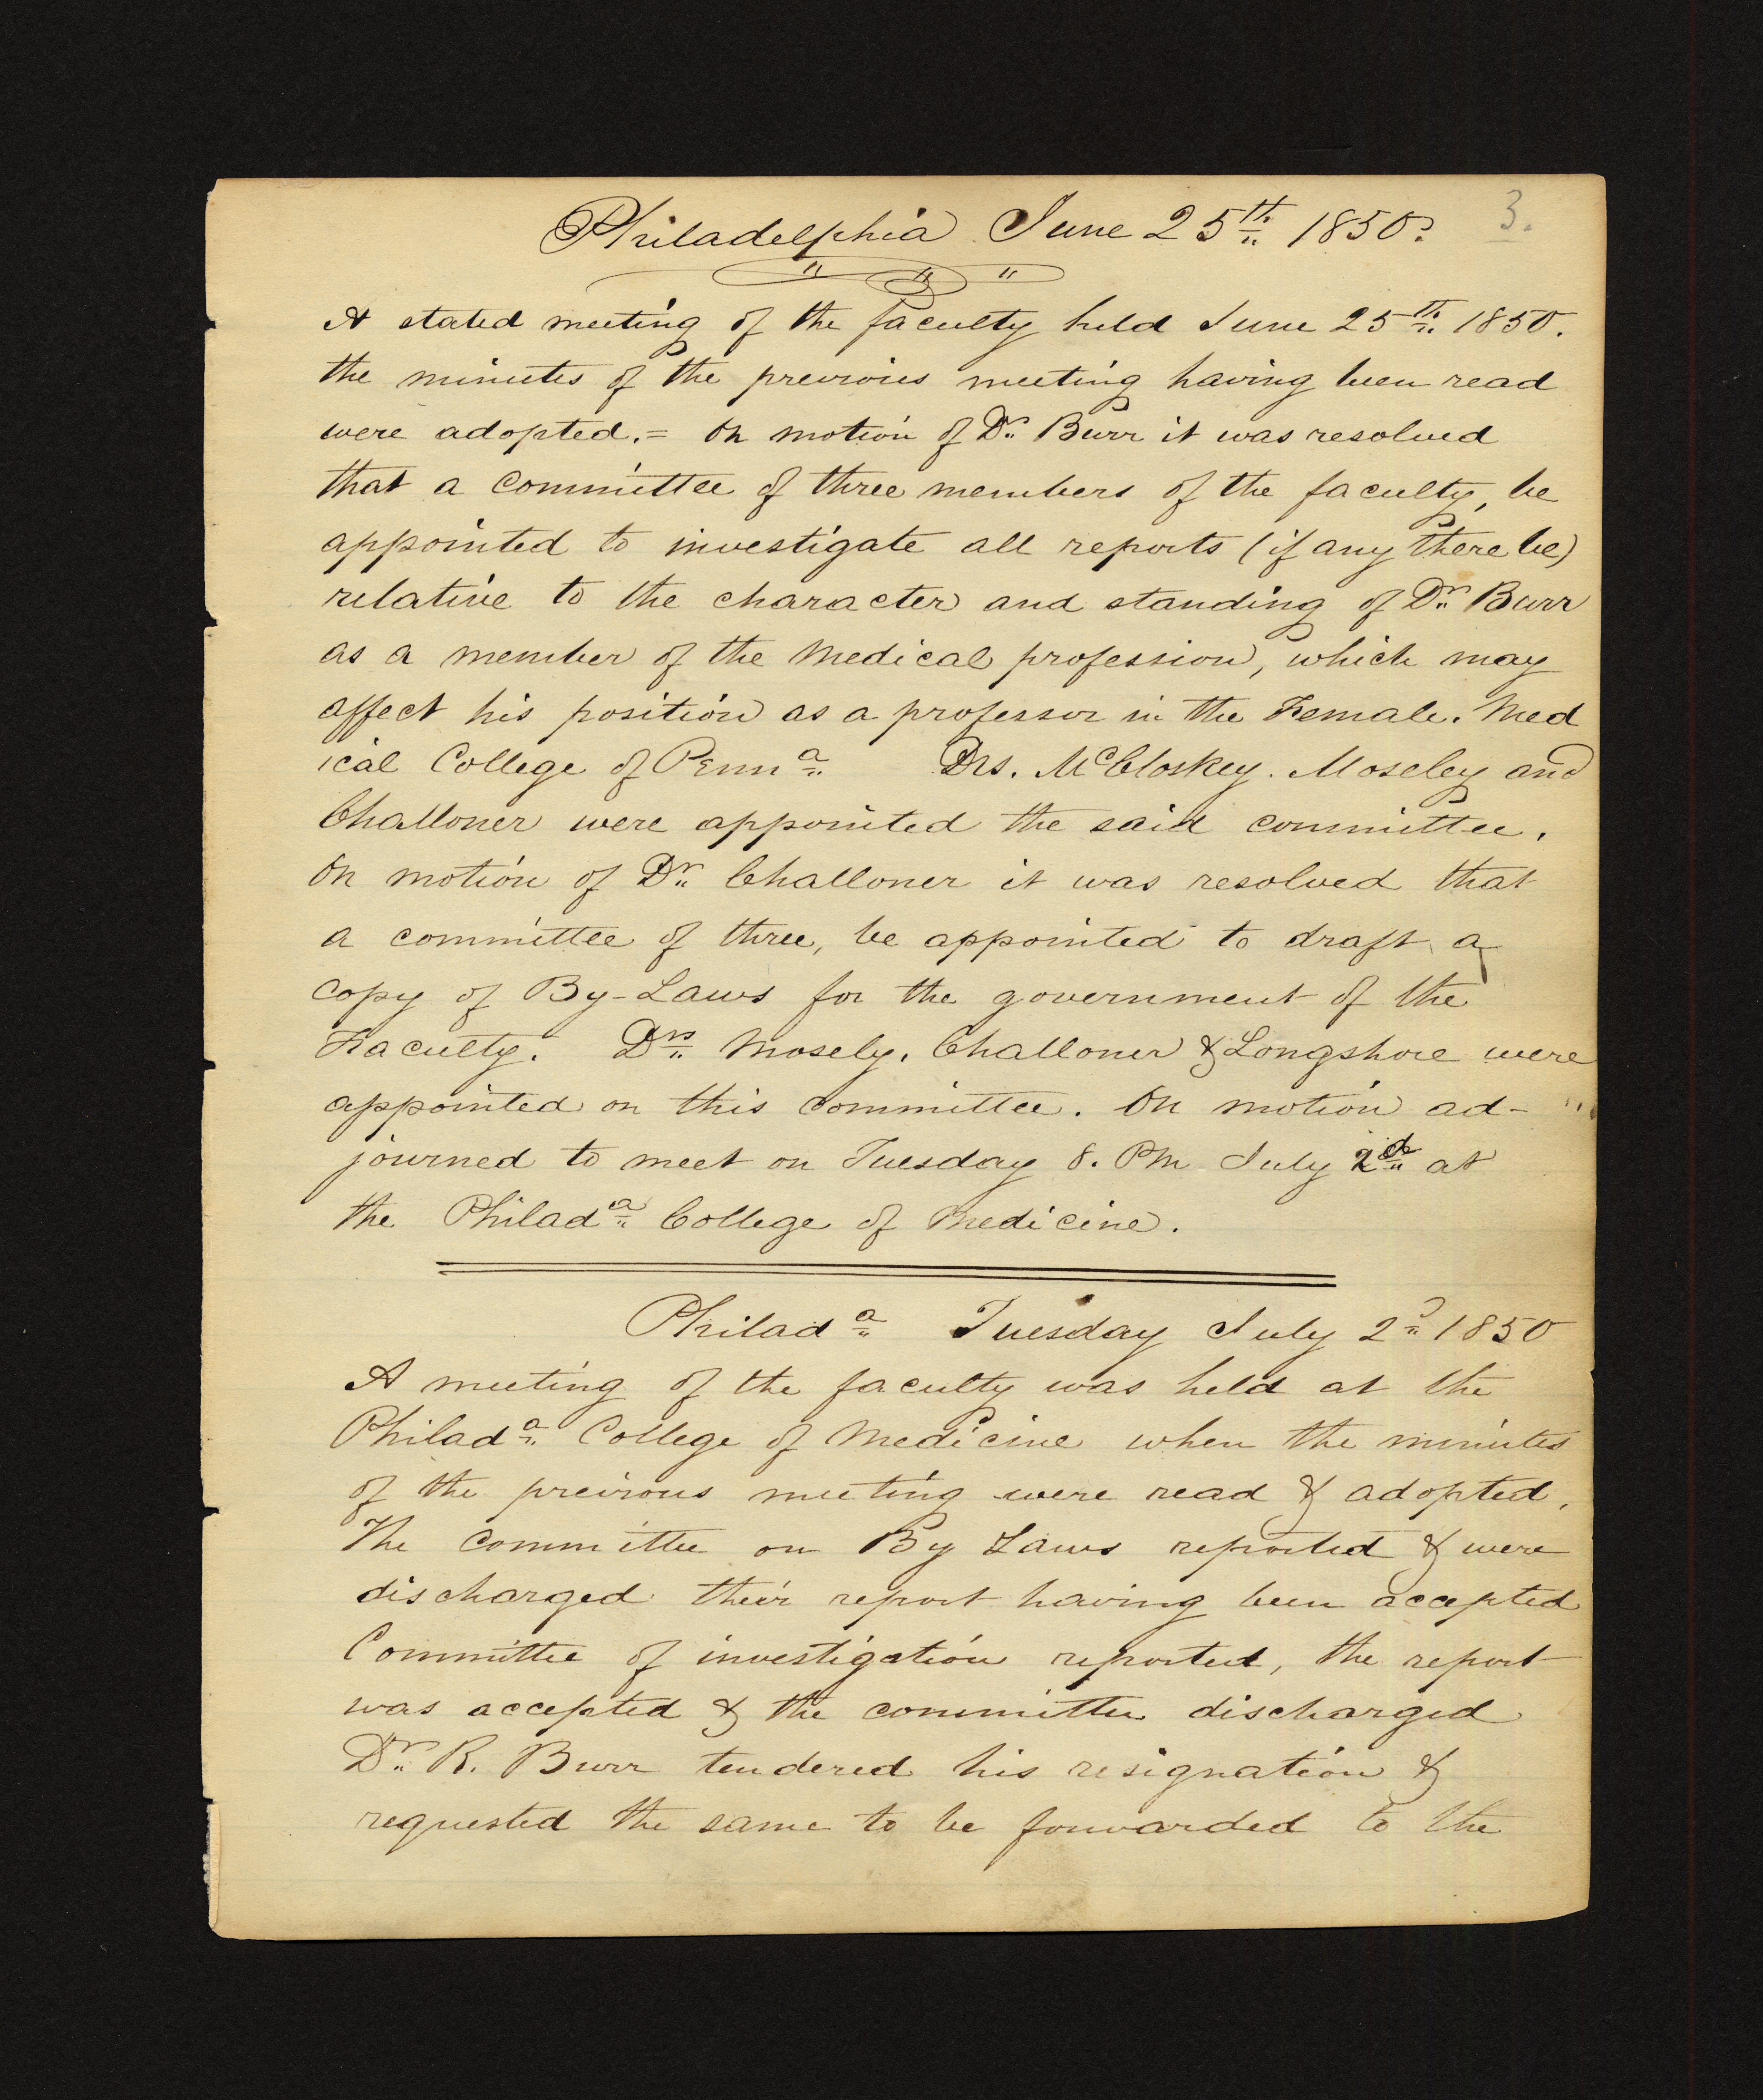 Philadelphia June 25th 1850. 3.
A stated meeting of the faculty held June 25th 1850.
the minutes of the previous meeting having been read
were adopted.= On motion of Dr. Burr it was resolved
that a committee of three members of the faculty, be
appointed to investigate all reports (if any there be)
relative to the character and standing of Dr. Burr
as a member of the Medical profession, which may
affect his position as a professor in the Female. Med
ical College of Penna. Drs. McCloskey. Moseley and
Challoner were appointed the said committee.
On motion of Dr. Challoner it was resolved that
a committee of three, be appointed to draft a
copy of By-Laws for the government of the
Faculty. Drs. Mosely, Challoner & Longshore were
appointed on this committee. On motion ad-
journed to meet on Tuesday 8. PM July 2d at
the Philada. College of Medicine.
Philada. Tuesday July 2d 1850
A meeting of the faculty was held at the
Philada. College of Medicine when the minutes
of the previous meeting were read & adopted.
The committee on By Laws reported & were
discharged their report having been accepted
Committee of investigation reported, the report
was accepted & the committee discharged
Dr. R. Burr tendered his resignation &
requested the same to be forwarded to the